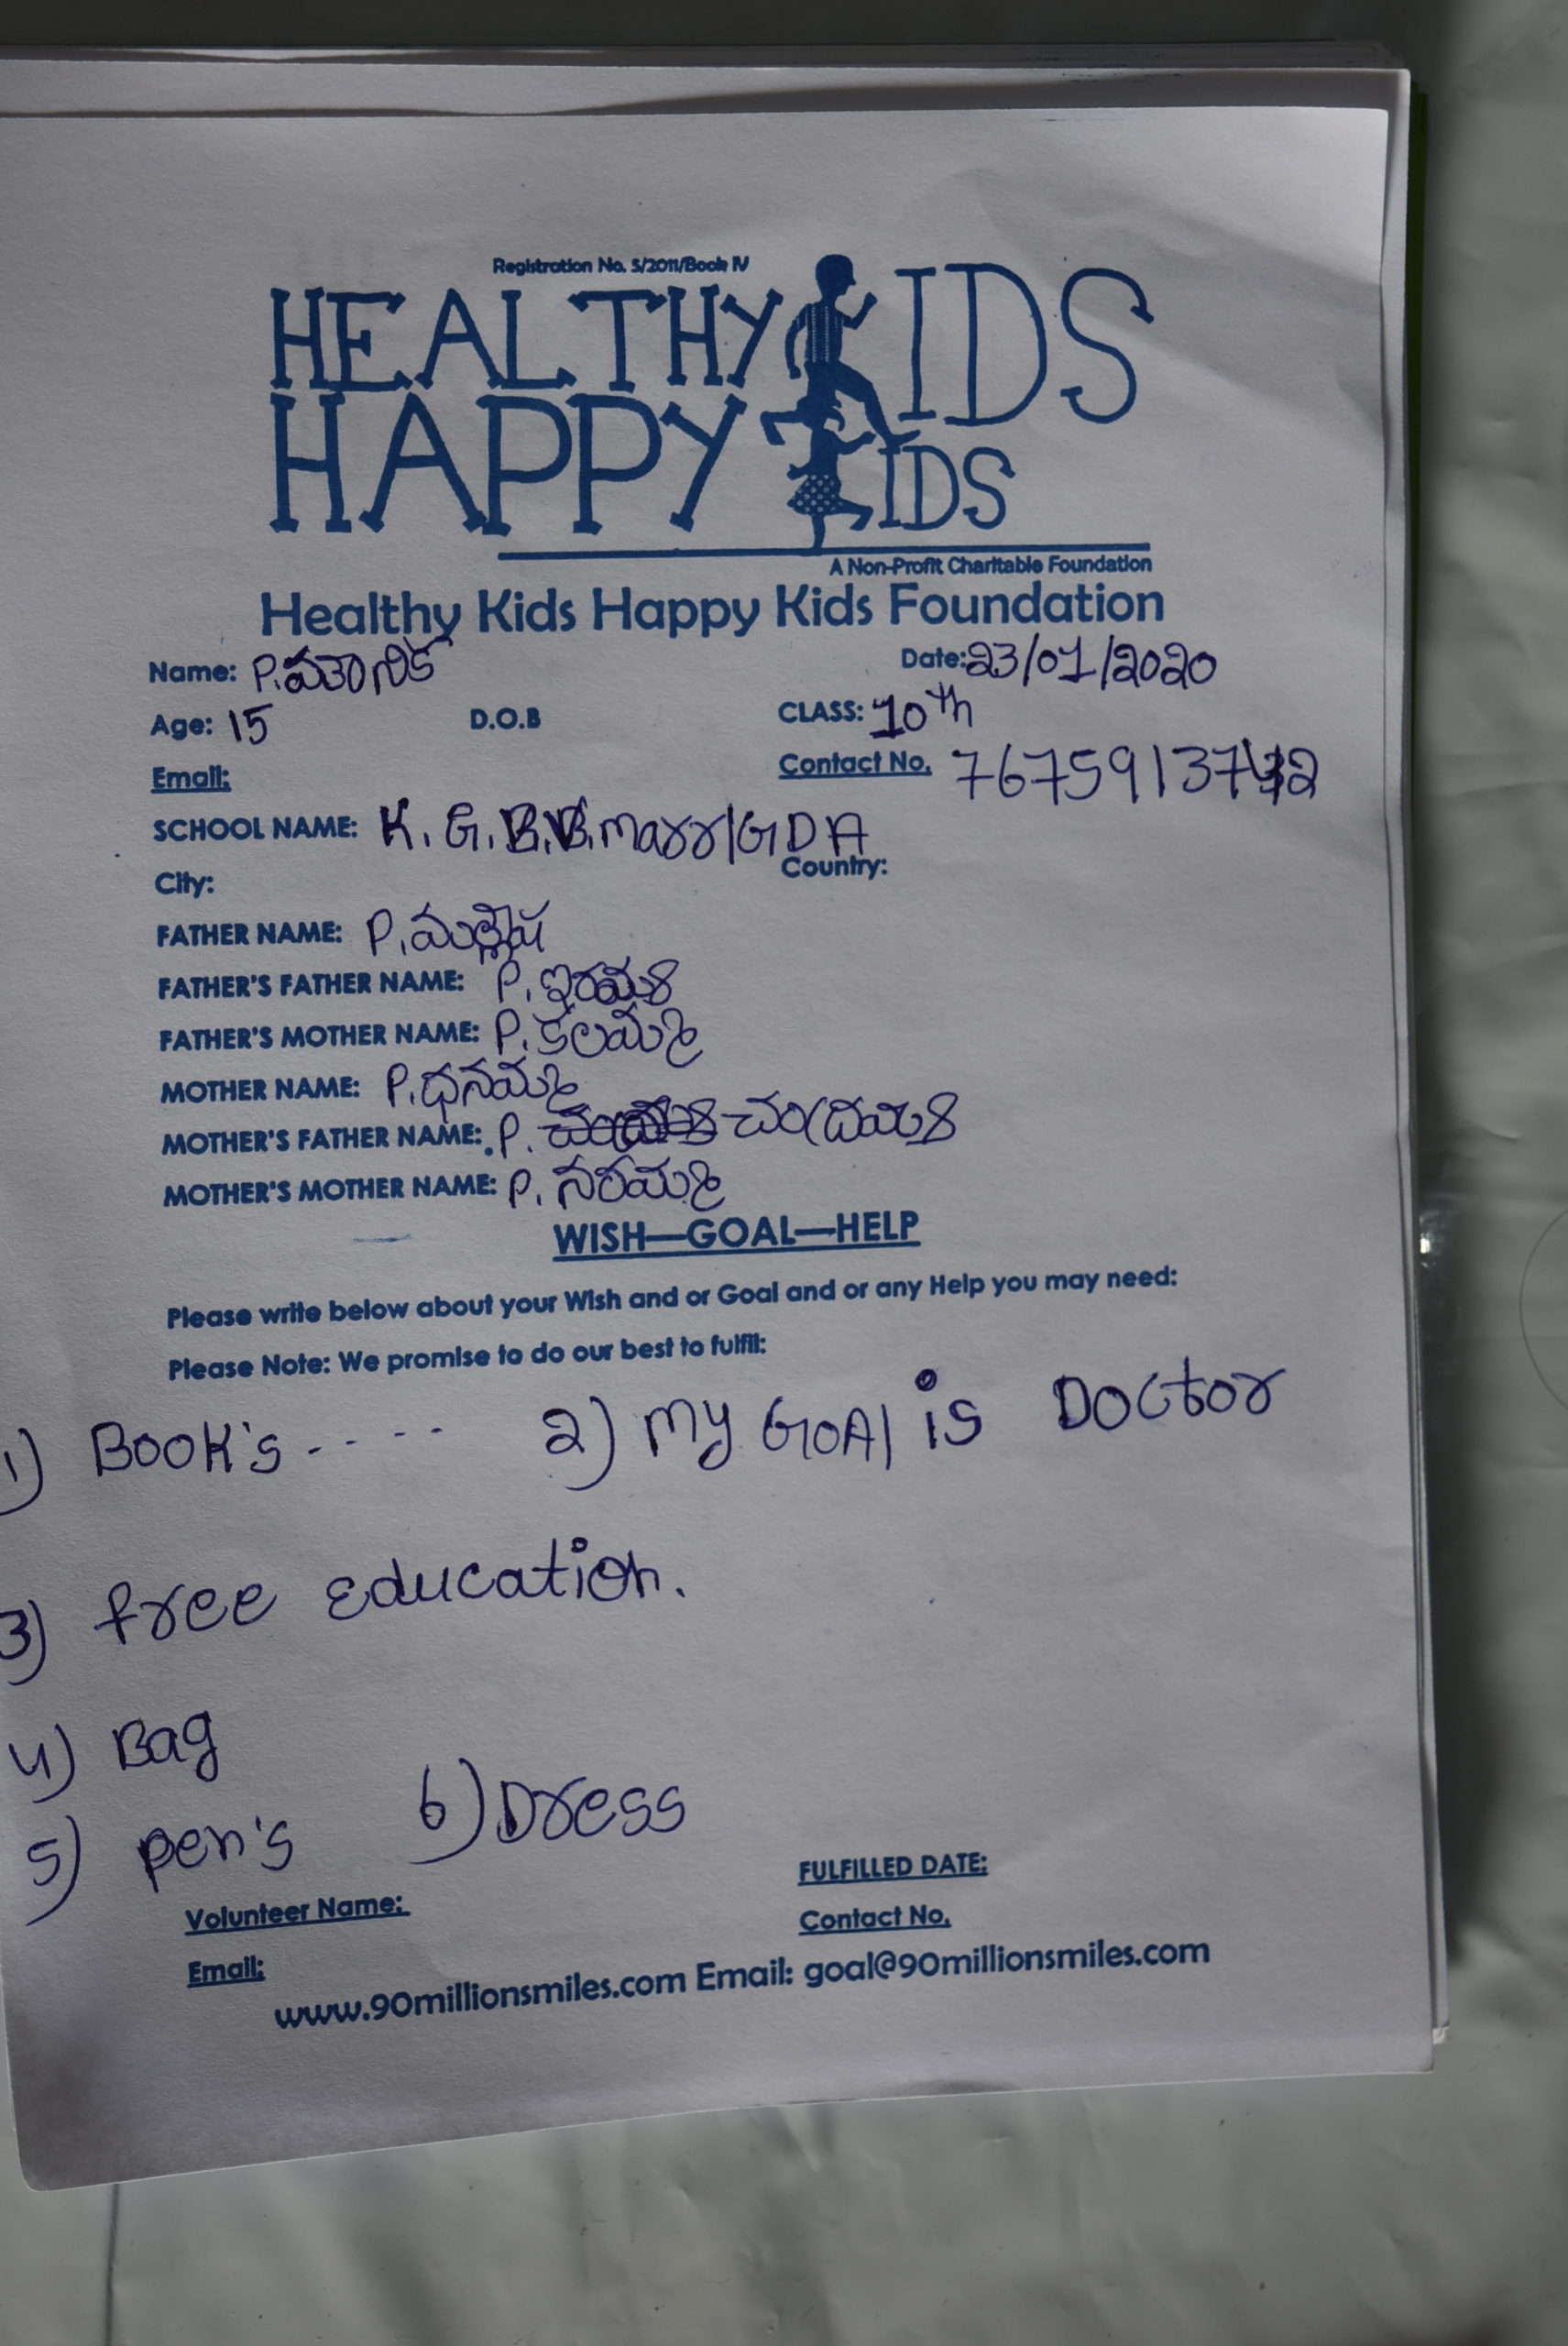 Registration No. 5/2011/Book IV
HEALTHY KIDS
HAPPY KIDS
A Non-Profit Charitable Foundation
Healthy Kids Happy Kids Foundation
Name: P. Date: 23/01/2020
Age: 15 D.O.B CLASS: 10th
Email: Contact No.
SCHOOL NAME: K. G.
City: Country:
FATHER NAME: P.
FATHER'S FATHER NAME: P.
FATHER'S MOTHER NAME: P. కలమ్మ
MOTHER NAME: P. ధనమ్మ
MOTHER'S FATHER NAME: P.
MOTHER'S MOTHER NAME: P. నరమ్మ
WISH—GOAL—HELP
Please write below about your Wish and or Goal and or any Help you may need:
Please Note: We promise to do our best to fulfil:
1) BOOK's - - - - 2) my GOAl is DOCtor
3) free Education.
4) Bag
5) pen's 6) Dress
FULFILLED DATE:
Volunteer Name: Contact No.
Email:
www.90millionsmiles.com Email: goal@90millionsmiles.com